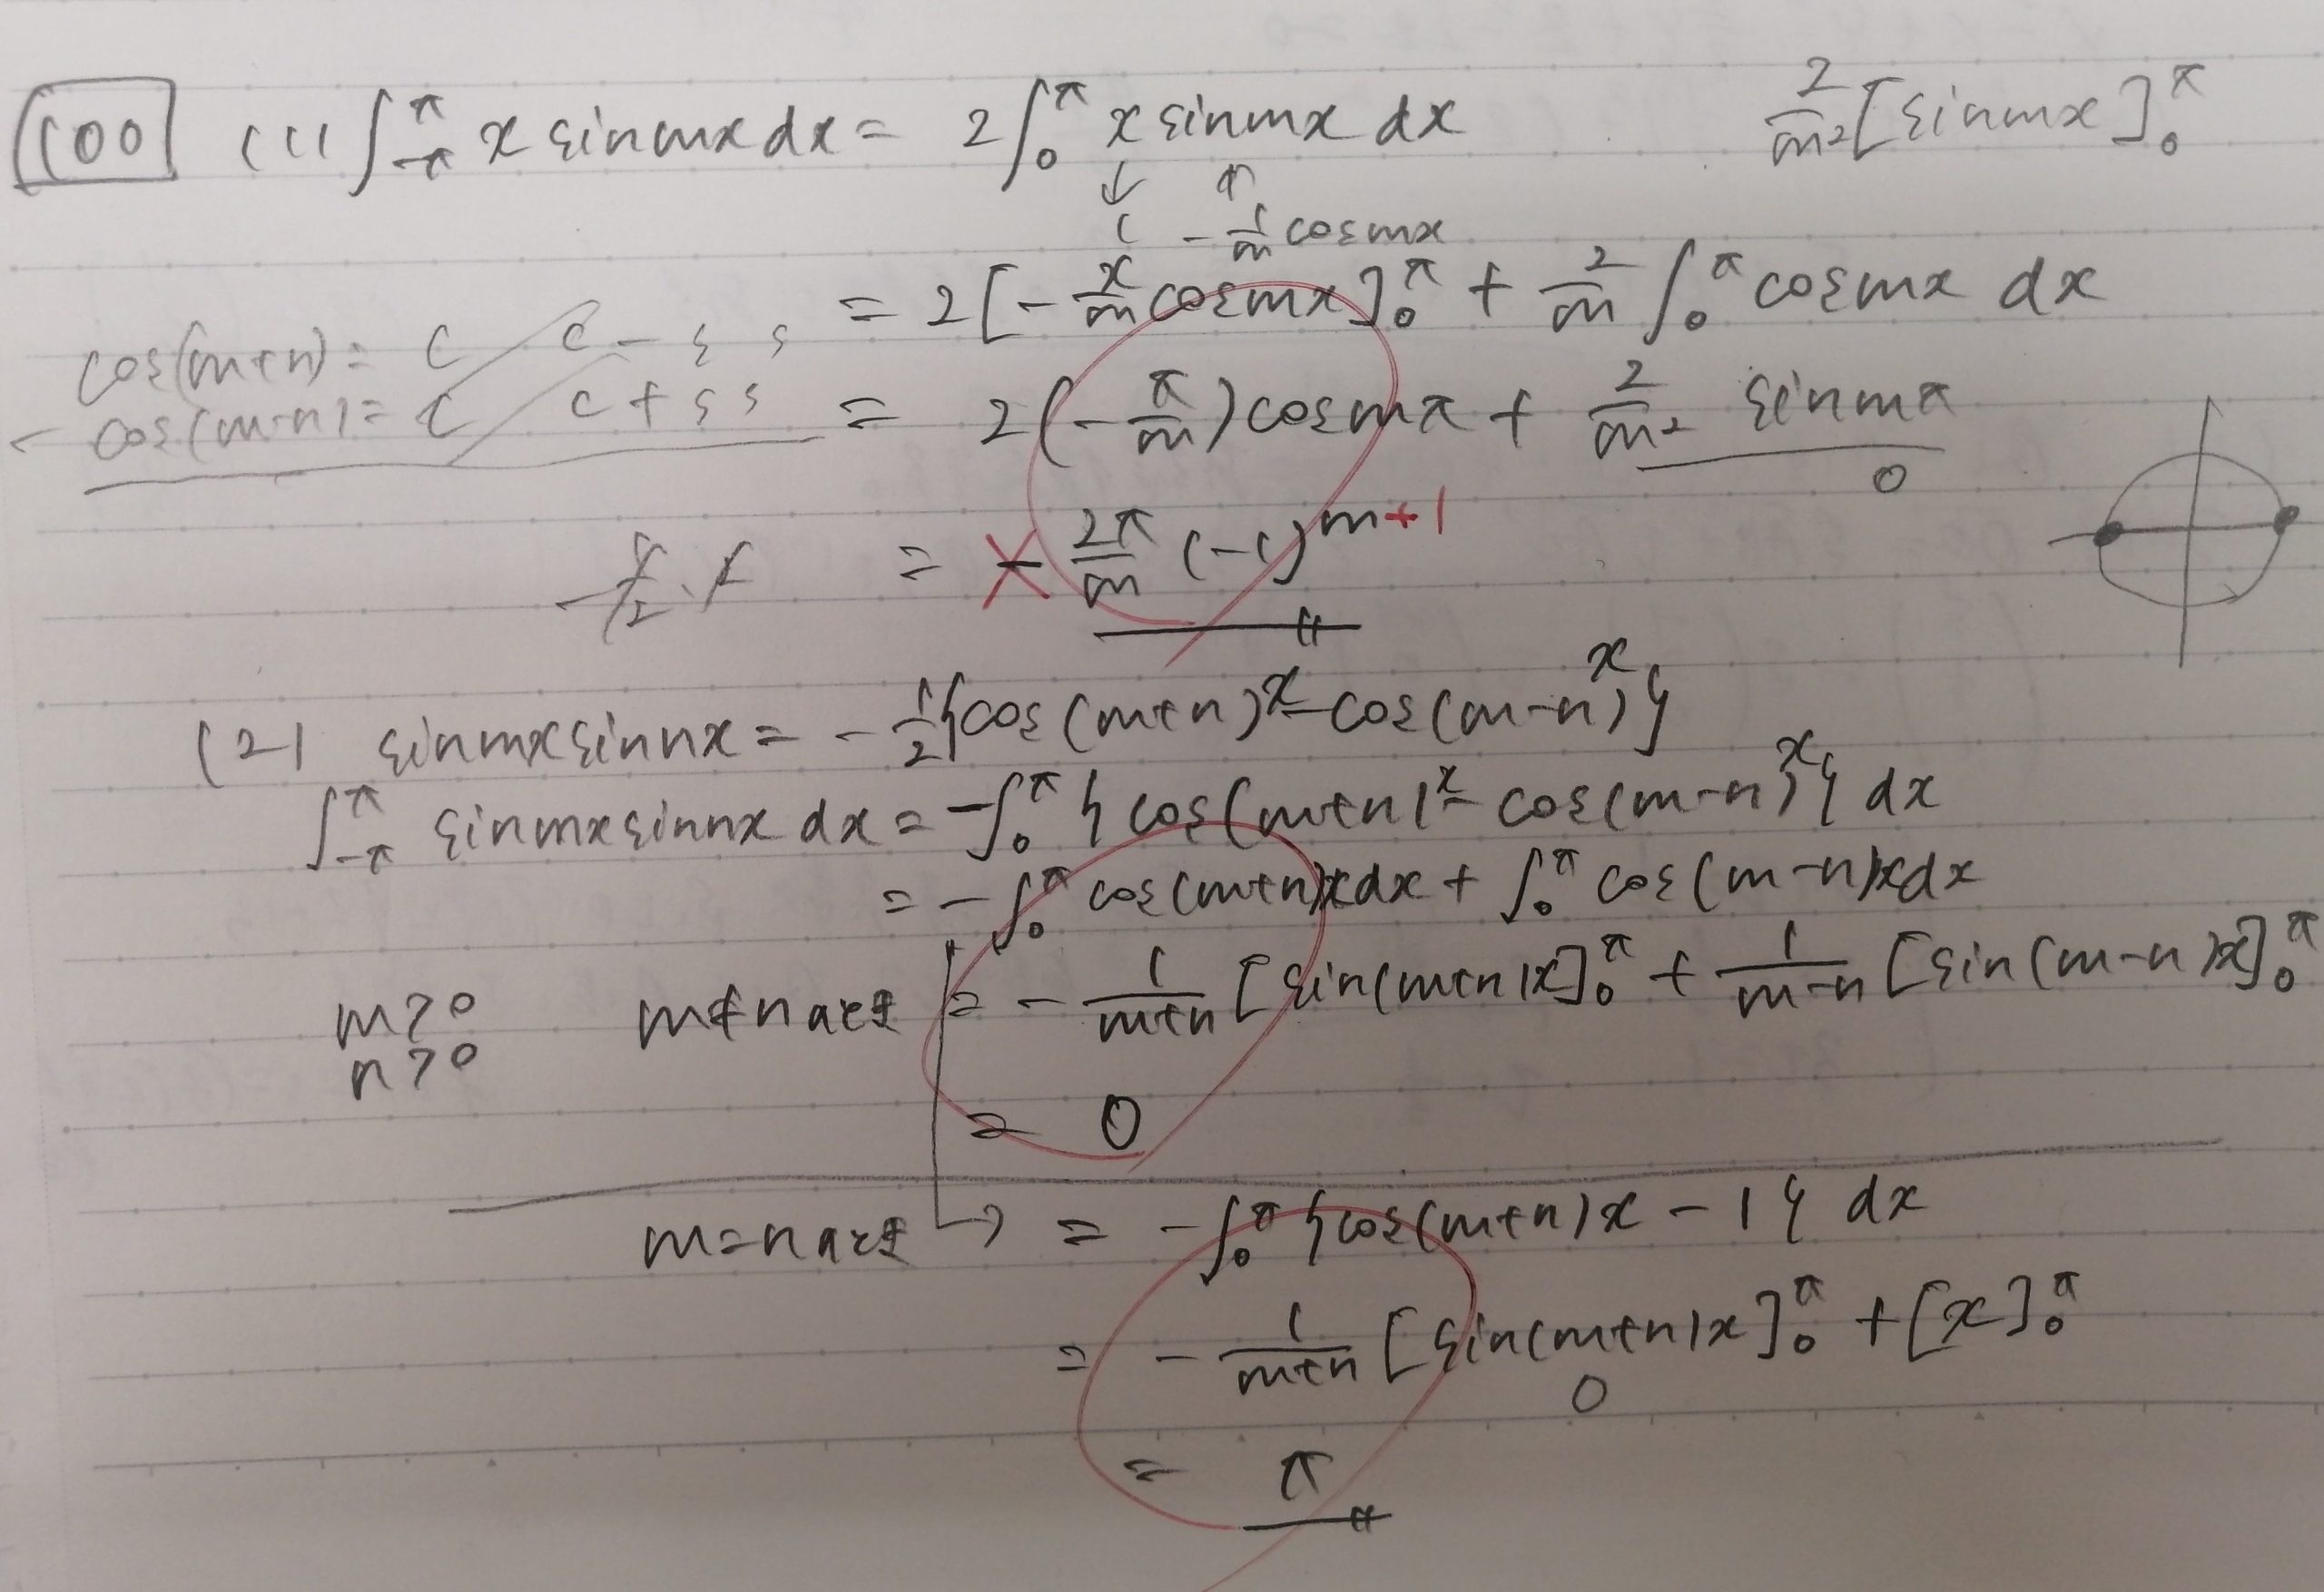 100 (1) ∫_{-π}^{π} x sin mx dx = 2∫_0^π x sin mx dx
2/m² [sin mx]_0^π
↓ ↑
1 -1/m cos mx
= 2[-x/m cos mx]_0^π + 2/m ∫_0^π cos mx dx
cos(m+n) = c c - s s
- cos(m-n) = c c + s s
= 2(-π/m) cos mπ + 2/m² sin mπ
0
= - 2π/m (-1)^{m+1}
(2) sin mx sin nx = -1/2{cos(m+n)x - cos(m-n)x}
∫_{-π}^{π} sin mx sin nx dx = -∫_0^π {cos(m+n)x - cos(m-n)x} dx
= -∫_0^π cos(m+n)x dx + ∫_0^π cos(m-n)x dx
m>0
n>0
m≠n のとき = -1/(m+n) [sin(m+n)x]_0^π + 1/(m-n) [sin(m-n)x]_0^π
= 0
m=n のとき → = -∫_0^π {cos(m+n)x - 1} dx
= -1/(m+n) [sin(m+n)x]_0^π + [x]_0^π
0
= π